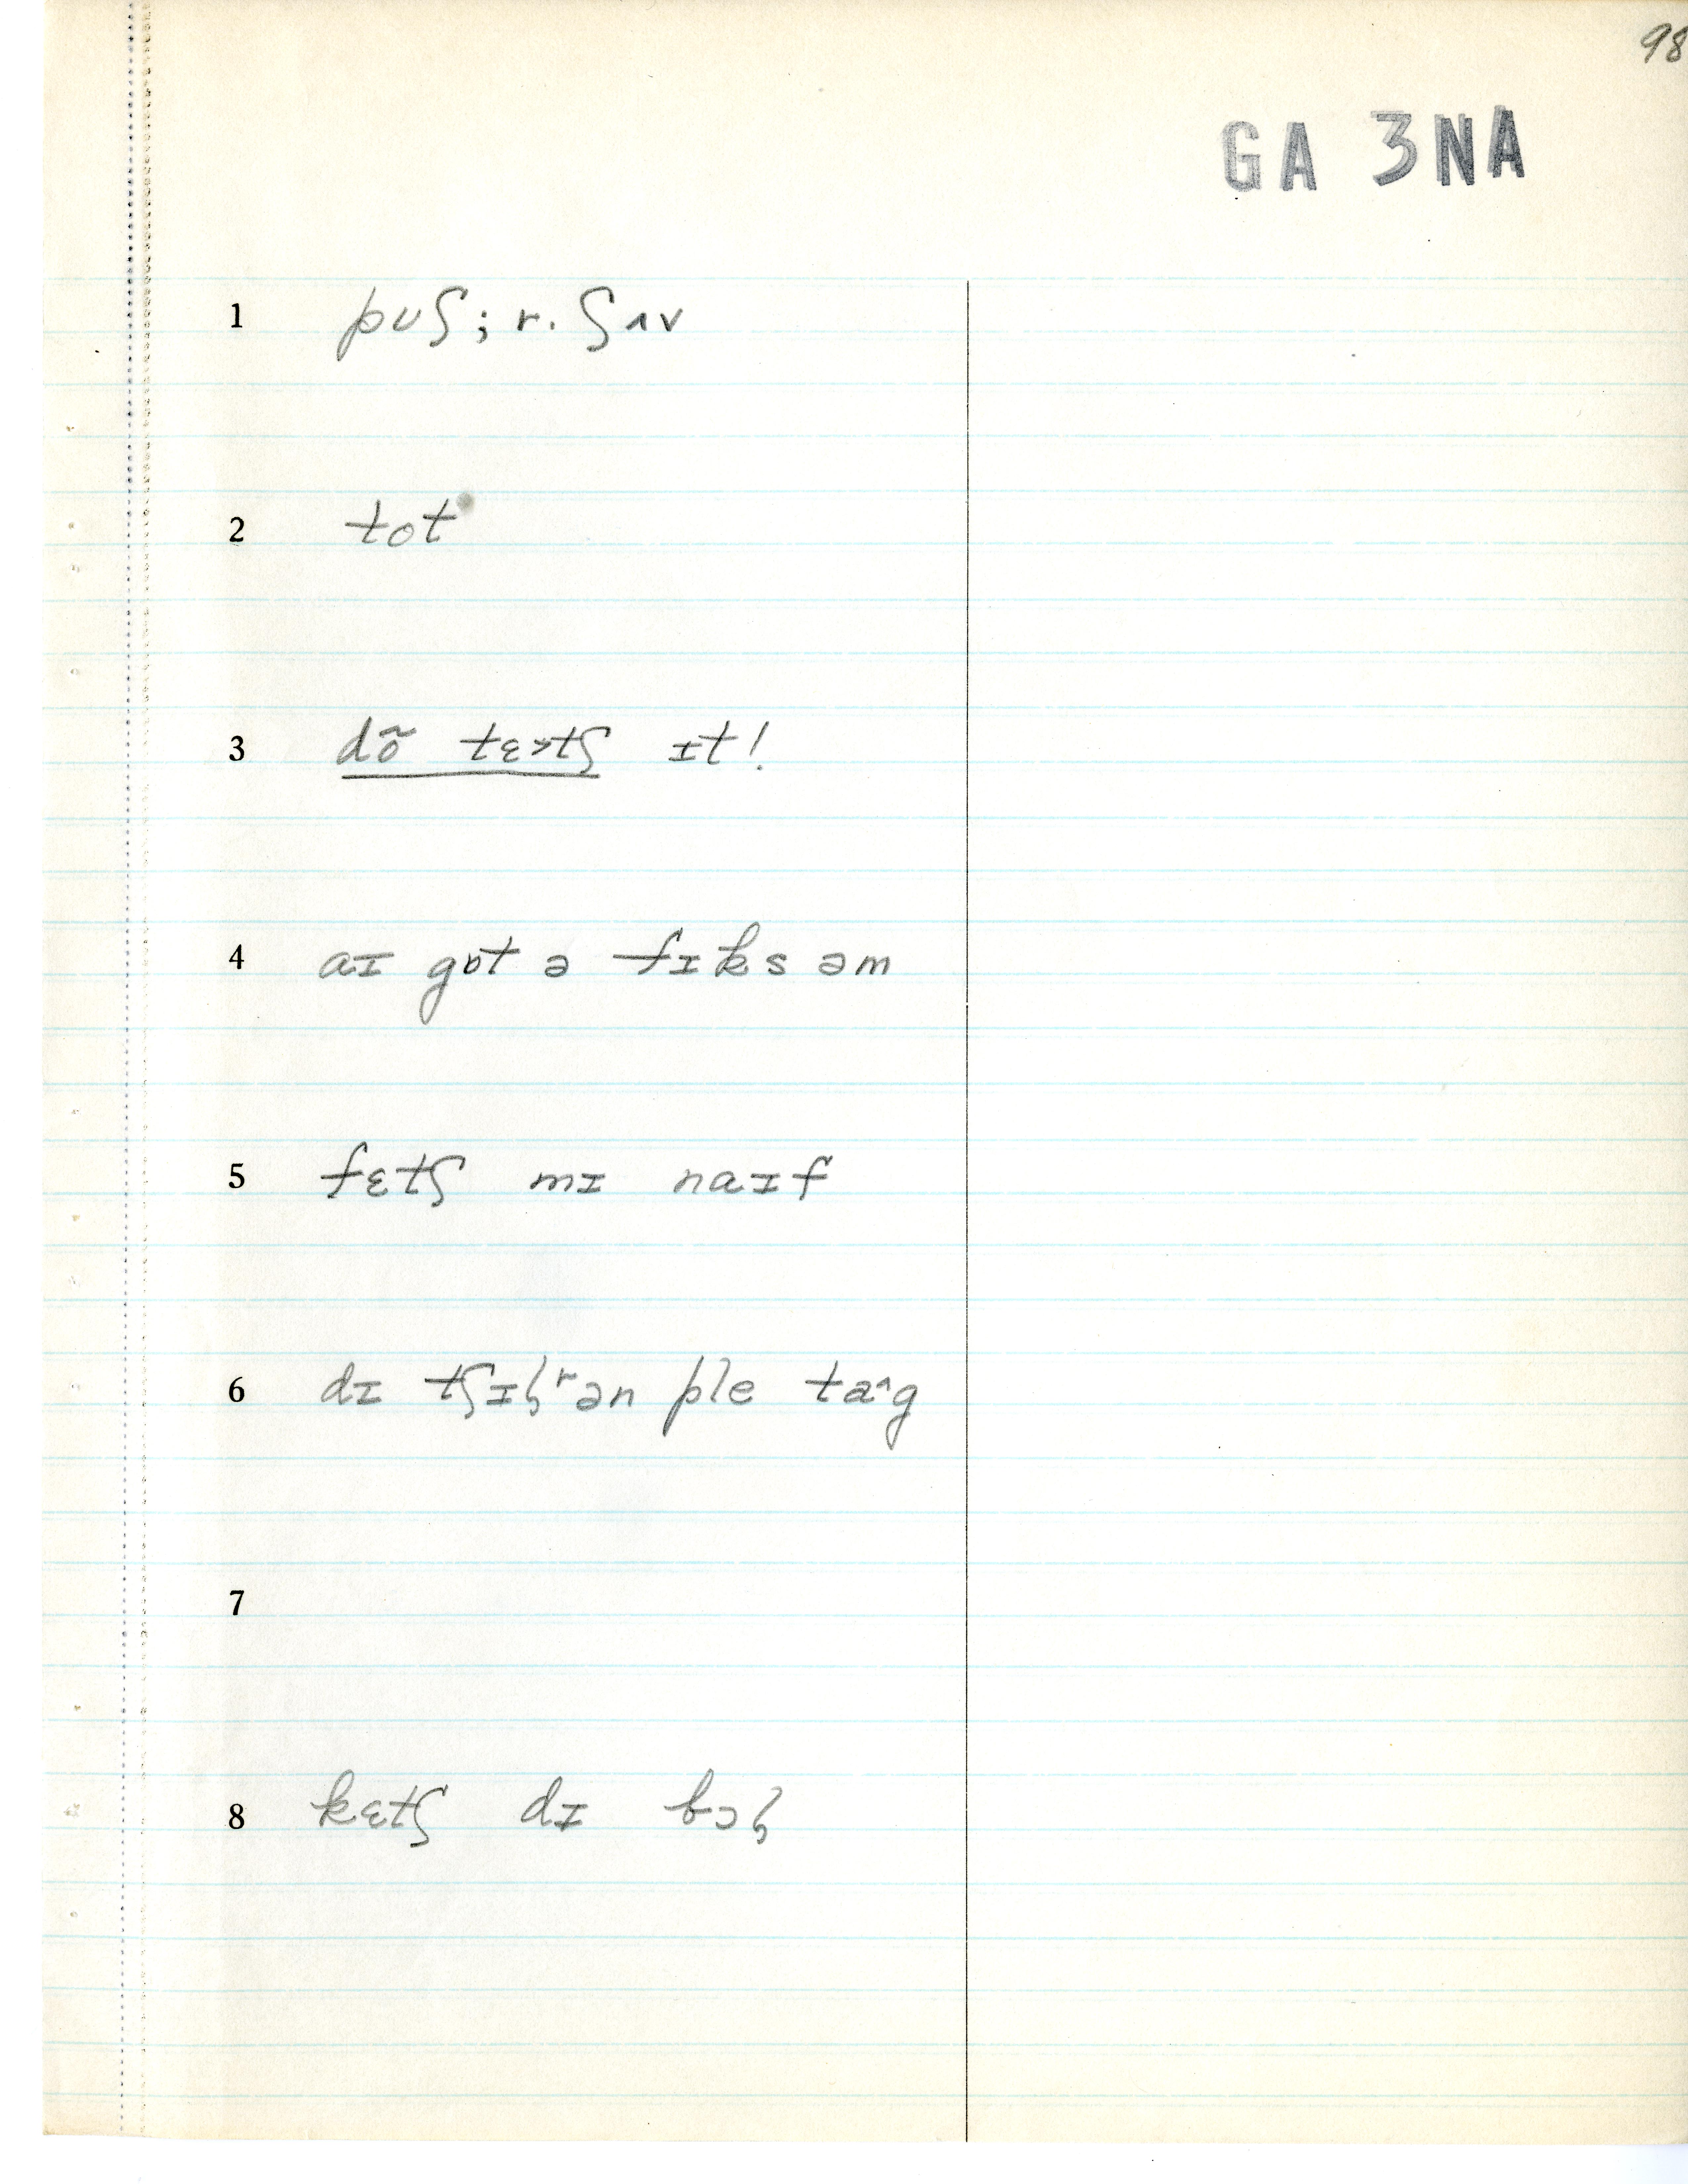 98
GA 3NA
1 pʊʃ; r. ʃʌv
2 tot
3 dõ tɛ˃tʃ ɪt!
4 aɪ gɒt ə fɪks əm
5 fɛtʃ mɪ naɪf
6 dɪ tʃɪɫʳən ple ta^g
7
8 kɛtʃ dɪ bɔɫ